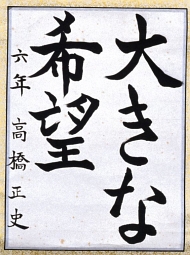 大きな
希望
六年 高橋正史